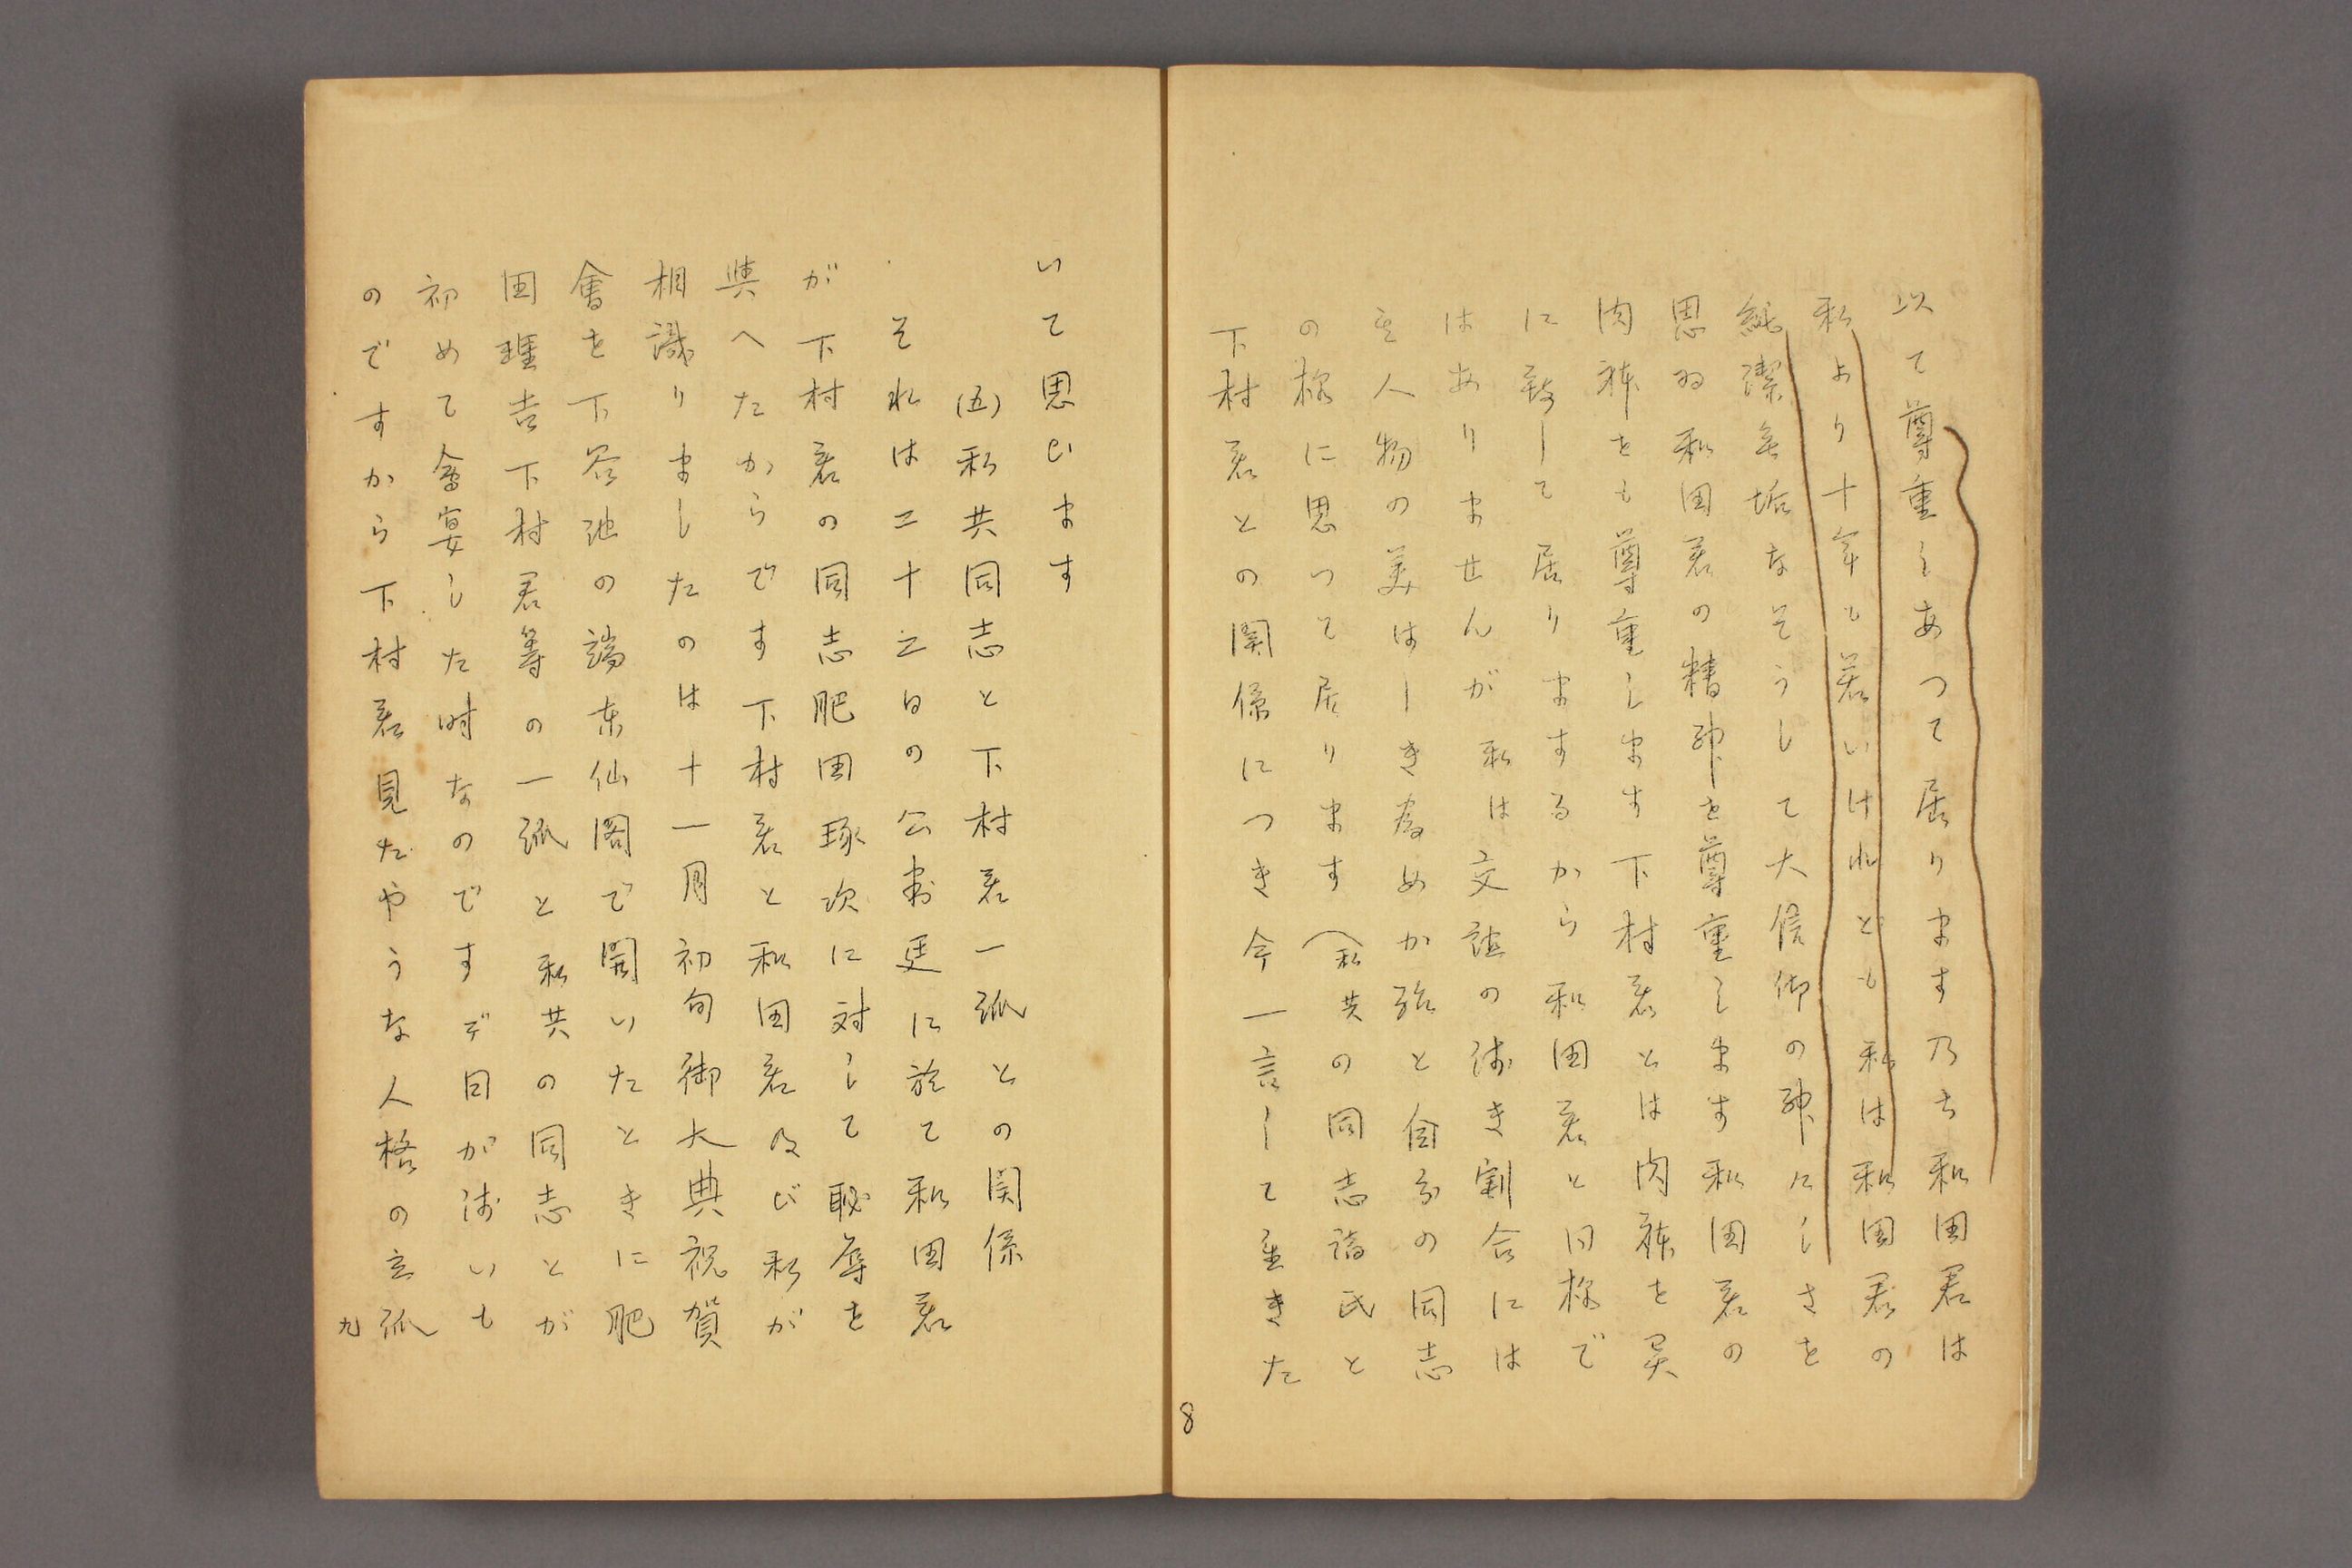 以て尊重しあつて居ります乃ち和田君は
私より十年も若いけれども私は和田君の
純潔無垢なそうして大信仰の神々しさを
思ひ和田君の精神を尊重します和田君の
肉体をも尊重します下村君とは肉体を異
に致して居りまするから和田君と同様で
はありませんが私は交誼の浅き割合には
其人物の美はしき為めか殆と自分の同志
の様に思つて居ります(私共の同志諸氏と
下村君との関係につき今一言して置きた
8
いて思ひます
(五)私共同志と下村君一派との関係
それは二十三日の公判廷に於て和田君
が下村君の同志肥田琢次に対して恥辱を
與へたからです下村君と和田君及び私が
相識りましたのは十一月初旬御大典祝賀
會を下谷池の端東仙閣で開いたときに肥
田理吉下村君等の一派と私共の同志とが
初めて會宴した時なのですデ日が浅いも
のですから下村君見たやうな人格の立派
九